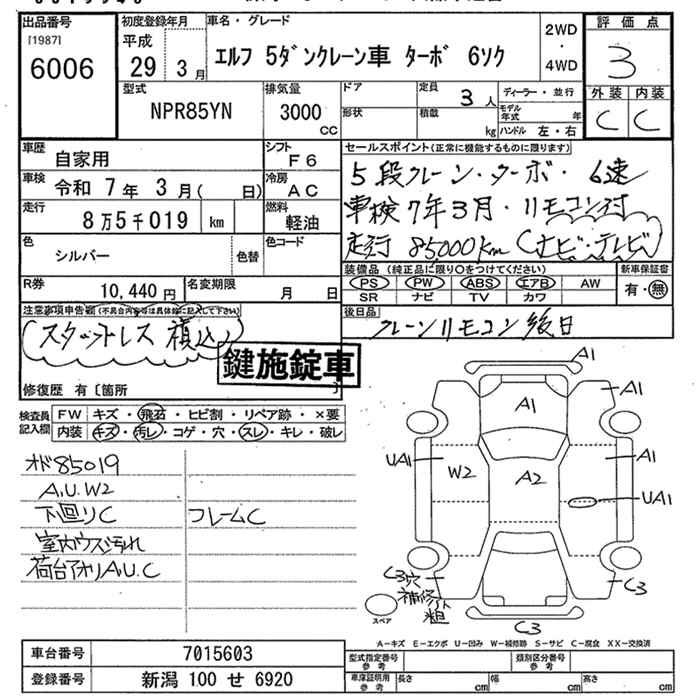 出品番号
[1987]
6006
初度登録年月
平成
29年 3月
車名・グレード
エルフ 5ダンクレーン車 ターボ 6ソク
2WD
・
4WD
評価点
3
外装 内装
C C
型式
NPR85YN
排気量
3000
cc
ドア
形状
定員
3人
積載
kg
ディーラー・並行
モデル年式 年
ハンドル 左・右
車歴
自家用
シフト
F6
車検
令和 7年 3月( 日)
冷房
AC
走行
8万5千019 km
燃料
軽油
色
シルバー
色替
色コード
R券
10,440円
名変期限
月 日
セールスポイント(正常に機能するものに限ります)
5段クレーン・ターボ・6速
車検7年3月・リモコン付
走行 85000km (ナビ・テレビ)
装備品(純正品に限り○をつけてください)
PS PW ABS エアB カワ AW
SR ナビ TV カワ
新車保証書
有・無
注意事項申告欄(不具合内容等は具体的に記入して下さい)
(スタットレス積込)
後日品
クレーンリモコン後日
鍵施錠車
修復歴 有〔箇所 〕
検査員記入欄
FW キズ・飛石・ヒビ割・リペア跡・×要
内装 キズ・汚レ・コゲ・穴・スレ・キレ・破レ
オド85019
A.U.W2
下回りC フレームC
室内ウス汚れ
荷台アオリA.U.C
A1
A1
A1
UA1
W2
A2
A1
UA1
C3穴
補修イト
粗
C3
C3
スペア
A-キズ E-エクボ U-凹み W-補修跡 S-サビ C-腐食 XX-交換済
車台番号 7015603
登録番号 新潟 100 せ 6920
型式指定番号
参考
類別区分番号
参考
車庫証明用
参考
長さ cm
幅 cm
高さ cm